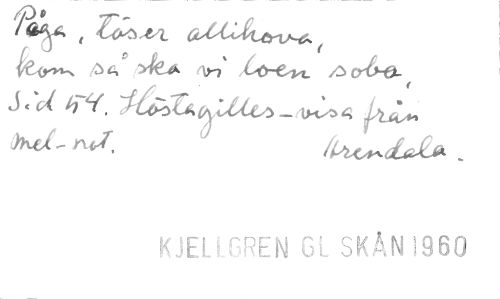 Påga, töser allihova,
kom så ska vi loen soba,
Sid 54. Höstagilles-visa från
mel-not. Arendala.
KJELLGREN GL SKÅN 1960